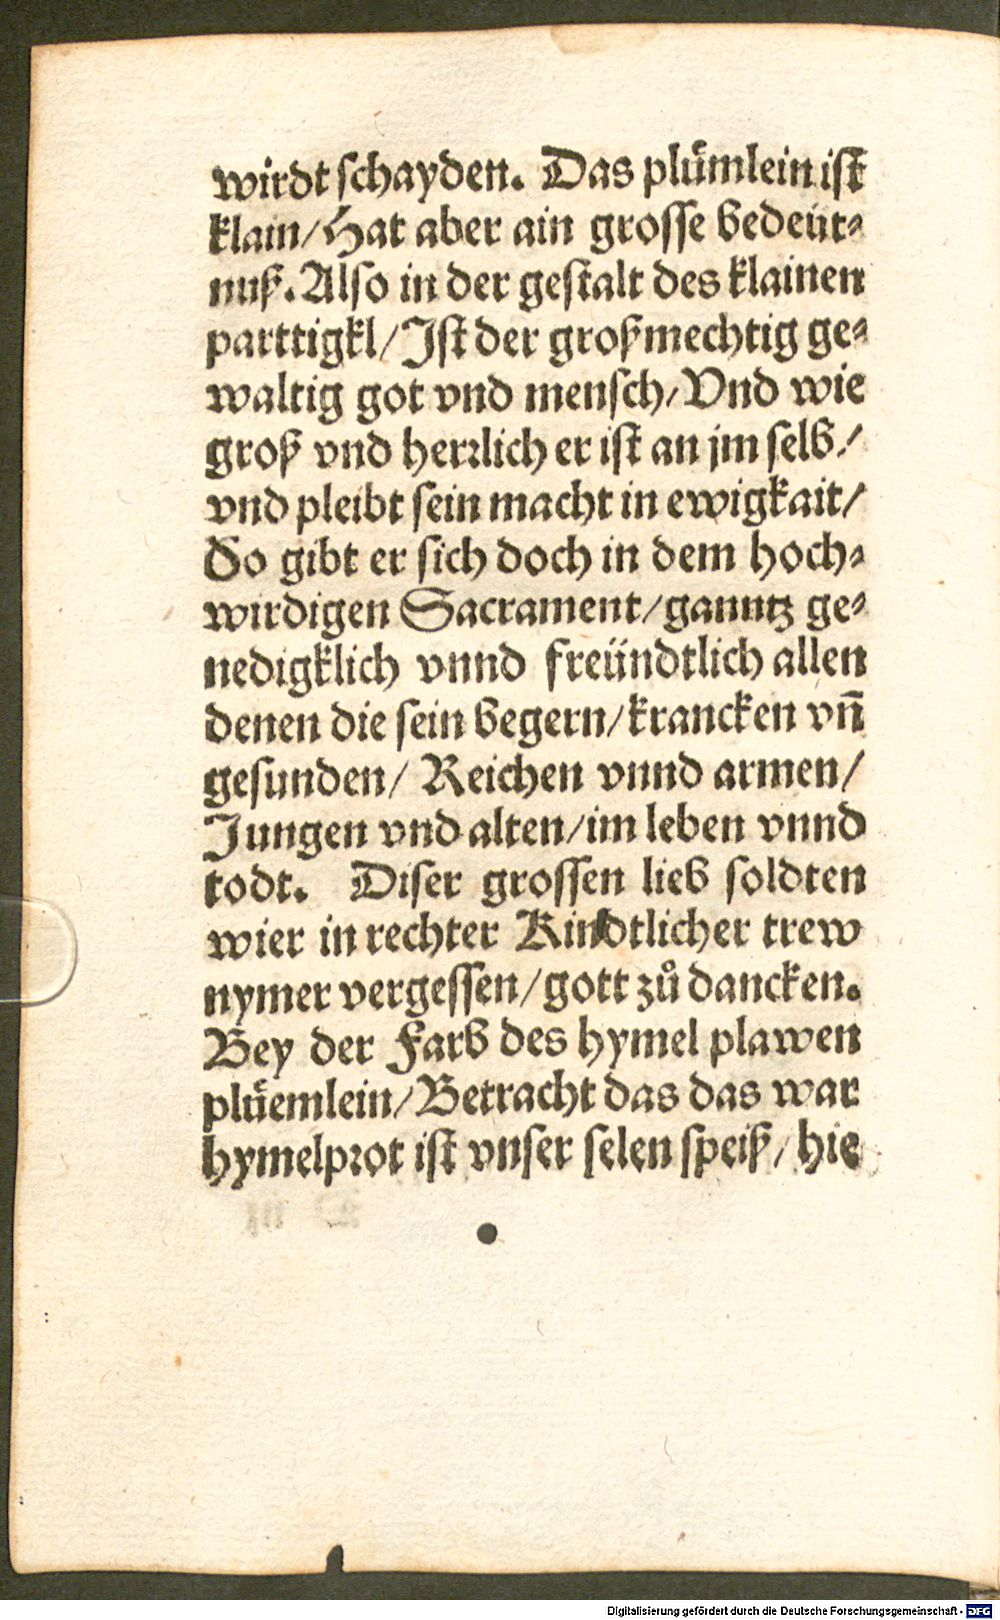 wirdt schayden. Das plümlein ist
klain/Hat aber ain grosse bedeüt⸗
nuß. Also in der gestalt des klainen
parttigkl/Jst der großmechtig ge⸗
waltig got vnd mensch/Vnd wie
groß vnd herꝛlich er ist an jm selb/
vnd pleibt sein macht in ewigkait/
So gibt er sich doch in dem hoch⸗
wirdigen Sacrament/ganntz ge⸗
nedigklich vnnd freündtlich allen
denen die sein begern/krancken vn̄
gesunden/ Reichen vnnd armen/
Jungen vnd alten/im leben vnnd
todt. Diser grossen lieb soldten
wier in rechter Kindtlicher trew
nymer vergessen/gott zů dancken.
Bey der Farb des hymel plawen
plüemlein/Betracht das das war
hymelpꝛot ist vnser selen speiß/hie
Digitalisierung gefördert durch die Deutsche Forschungsgemeinschaft - DFG